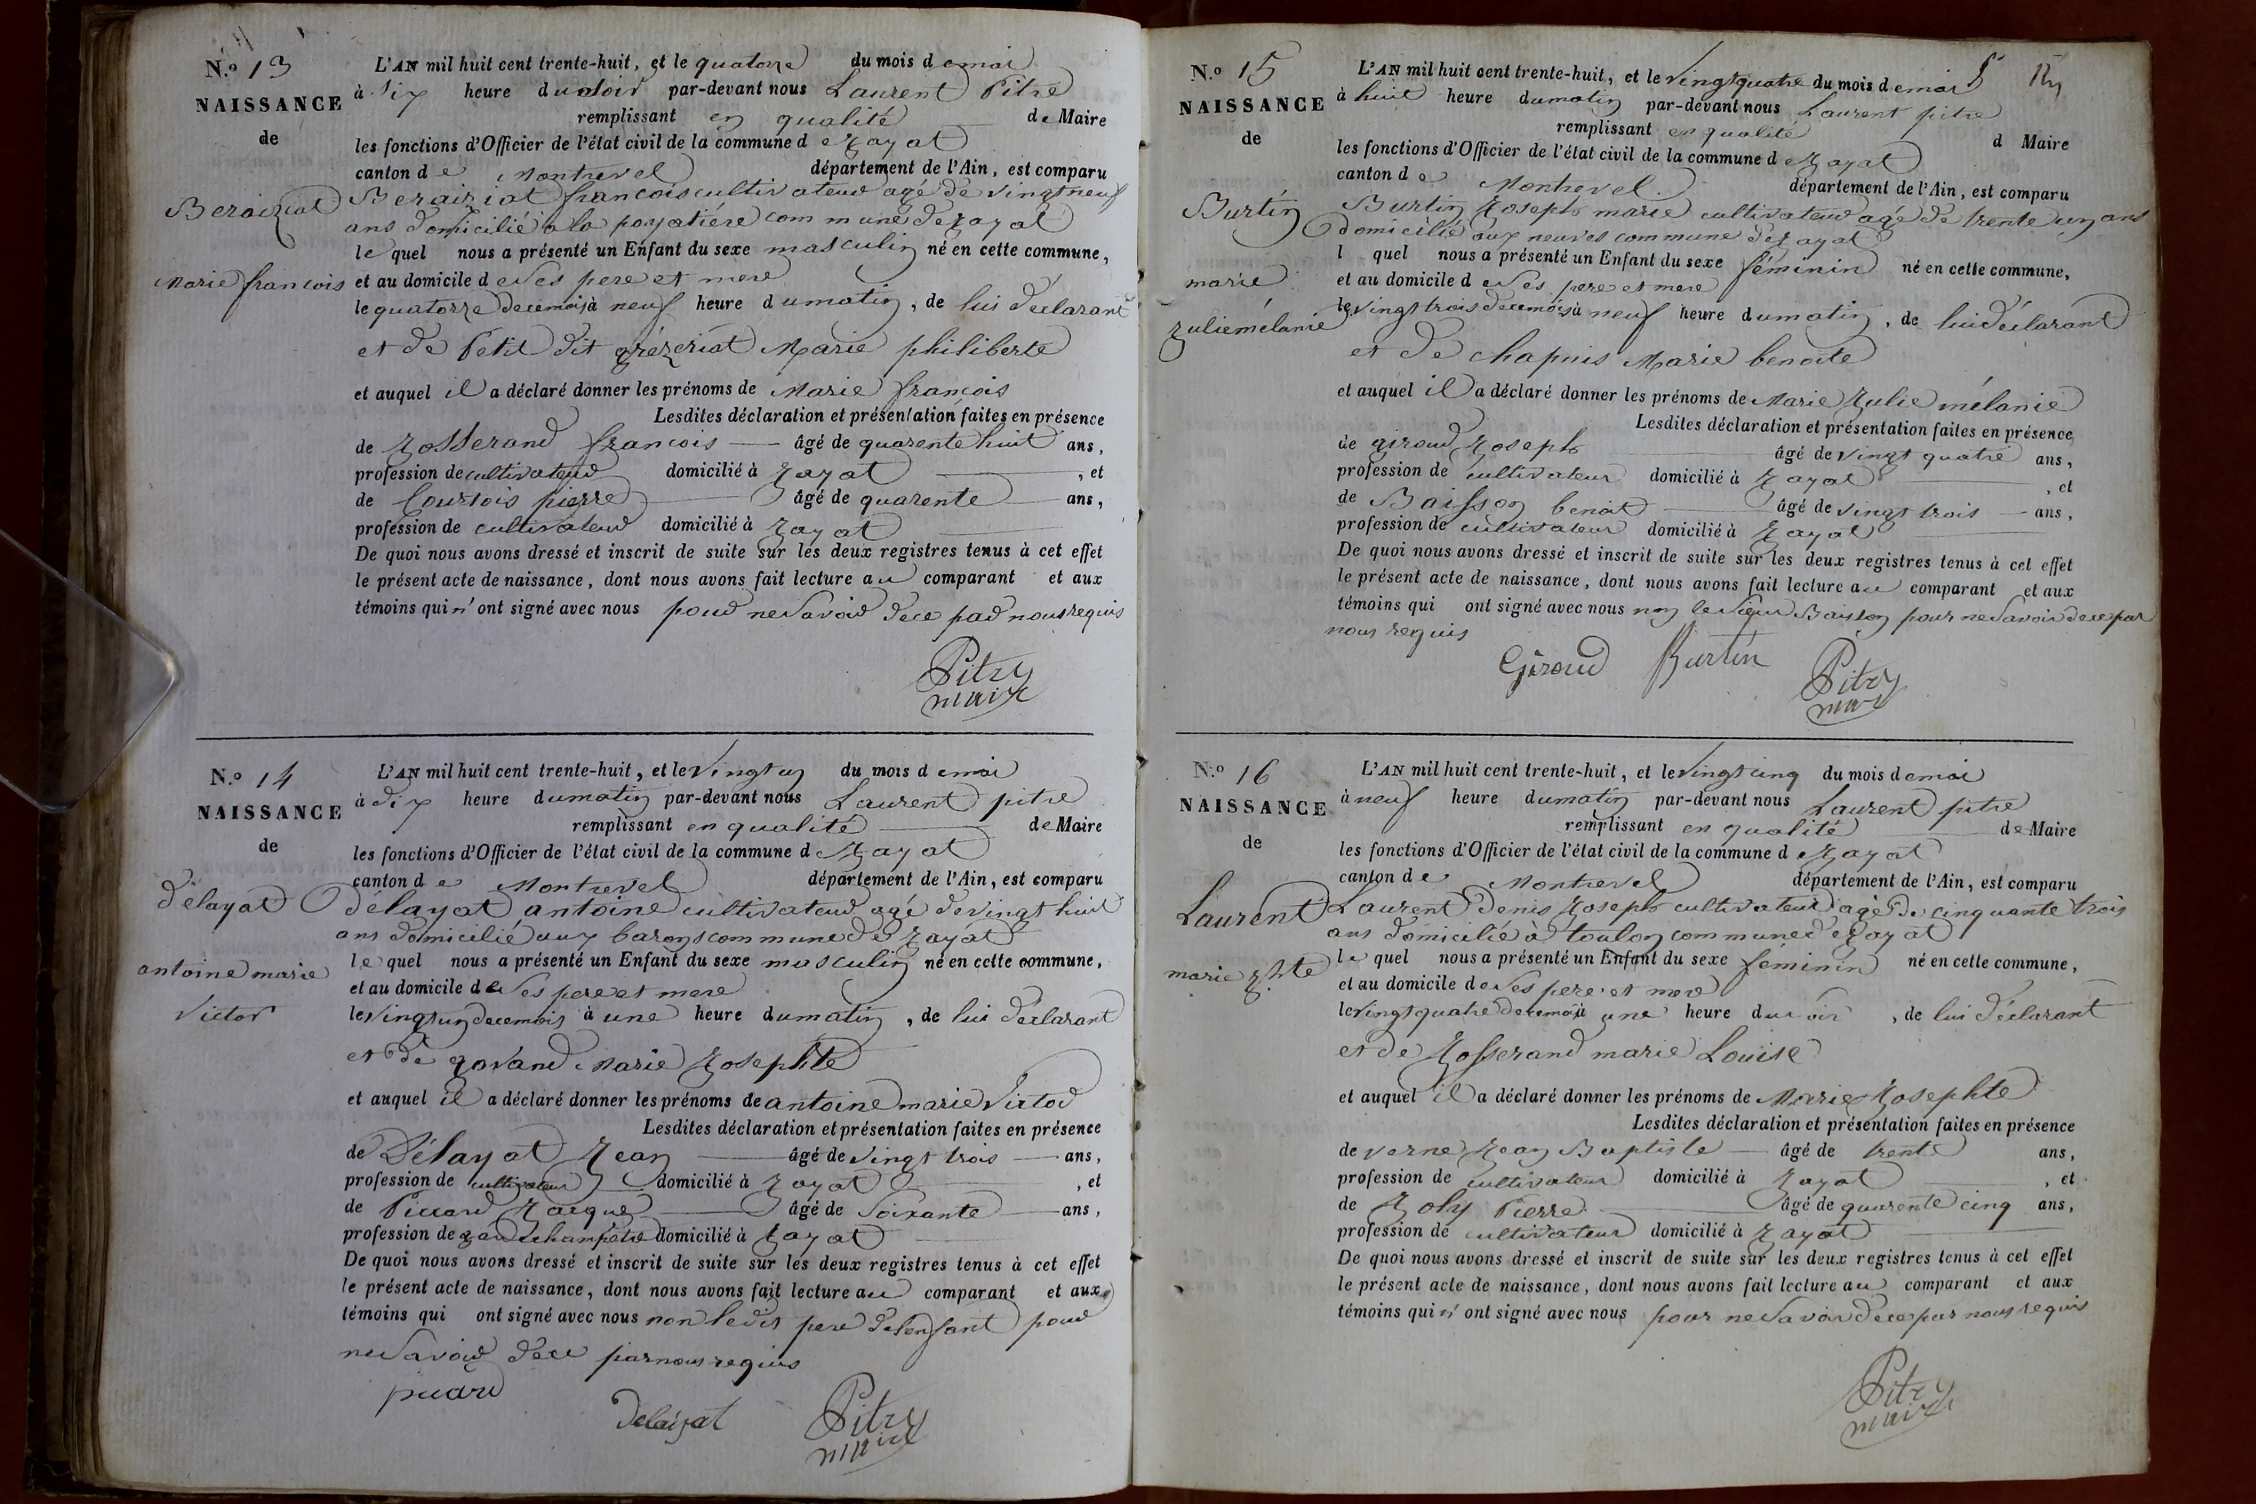 N.º 13
NAISSANCE
de
Beraiziat
Marie francois
L'AN mil huit cent trente-huit, et le quatorze du mois de mai
à six heure du soir par-devant nous Laurent Pitre
remplissant en qualité de Maire
les fonctions d'Officier de l'état civil de la commune de Jayat
canton de Montrevel département de l'Ain, est comparu
Beraiziat francois cultivateur agé de vingt neuf
ans domicilié à la poyatière commune de jayat
le quel nous a présenté un Enfant du sexe masculin né en cette commune,
et au domicile de ses pere et mere
le quatorze de ce mois à neuf heure du matin, de lui déclarant
et de Petit dit grézériat Marie philiberte
et auquel il a déclaré donner les prénoms de Marie francois
Lesdites déclaration et présentation faites en présence
de Josserand francois âgé de quarente huit ans,
profession de cultivateur domicilié à Jayat, et
de Courtois pierre âgé de quarente ans,
profession de cultivateur domicilié à Jayat
De quoi nous avons dressé et inscrit de suite sur les deux registres tenus à cet effet
le présent acte de naissance, dont nous avons fait lecture au comparant et aux
témoins qui n'ont signé avec nous pour ne savoir de ce par nous requis
Pitre
maire
N.º 14
NAISSANCE
de
délayat
antoine marie
victor
L'AN mil huit cent trente-huit, et le vingt un du mois de mai
à dix heure du matin par-devant nous Laurent pitre
remplissant en qualité de Maire
les fonctions d'Officier de l'état civil de la commune d Jayat
canton de Montrevel département de l'Ain, est comparu
délayat antoine cultivateur agé de vingt huit
ans domicilié aux barons commune de Jayat
le quel nous a présenté un Enfant du sexe masculin né en cette commune,
et au domicile de ses pere et mere
le vingt un de ce mois à une heure du matin, de lui déclarant
et de gavand Marie Josephte
et auquel il a déclaré donner les prénoms de antoine marie victor
Lesdites déclaration et présentation faites en présence
de Délayat Jean âgé de vingt trois ans,
profession de cultivateur domicilié à Jayat, et
de Piccard Jacque âgé de Soixante ans,
profession de garde champetre domicilié à Jayat
De quoi nous avons dressé et inscrit de suite sur les deux registres tenus à cet effet
le présent acte de naissance, dont nous avons fait lecture au comparant et aux
témoins qui ont signé avec nous non ledit pere de l'enfant pour
ne savoir de ce par nous requis
picard
Delaiyat
Pitre
maire
N.º 15
NAISSANCE
de
Burtin
marie
julie mélanie
L'AN mil huit cent trente-huit, et le vingt quatre du mois de mai
à huit heure du matin par-devant nous Laurent pitre
remplissant en qualité d Maire
les fonctions d'Officier de l'état civil de la commune de Jayat
canton de Montrevel département de l'Ain, est comparu
Burtin Joseph marie cultivateur agé de trente un ans
domicilié aux neuves commune de jayat
l quel nous a présenté un Enfant du sexe féminin né en cette commune,
et au domicile de ses pere et mere
le vingt trois de ce mois à neuf heure du matin, de lui déclarant
et de chapuis Marie benoite
et auquel il a déclaré donner les prénoms de Marie Julie mélanie
Lesdites déclaration et présentation faites en présence
de giroud Joseph âgé de vingt quatre ans,
profession de cultivateur domicilié à Jayat, et
de Baisson benoit âgé de vingt trois ans,
profession de cultivateur domicilié à Jayat
De quoi nous avons dressé et inscrit de suite sur les deux registres tenus à cet effet
le présent acte de naissance, dont nous avons fait lecture au comparant et aux
témoins qui ont signé avec nous non le sieur Baisson pour ne savoir de ce par
nous requis
Giroud Burtin
Pitre
N.º 16
NAISSANCE
de
Laurent
marie Jhte
L'AN mil huit cent trente-huit, et le vingt cinq du mois de mai
à neuf heure du matin par-devant nous Laurent pitre
remplissant en qualité de Maire
les fonctions d'Officier de l'état civil de la commune de Jayat
canton de Montrevel département de l'Ain, est comparu
Laurent denis Joseph cultivateur agé de cinquante trois
ans domicilié à toulon commune de Jayat
le quel nous a présenté un Enfant du sexe féminin né en cette commune,
et au domicile de ses pere et mere
le vingt quatre de ce mois à une heure du soir, de lui déclarant
et de Josserand marie Louise
et auquel il a déclaré donner les prénoms de Marie Josephte
Lesdites déclaration et présentation faites en présence
de verne Jean Baptiste âgé de trente ans,
profession de cultivateur domicilié à Jayat, et
de Joly Pierre âgé de quarente cinq ans,
profession de cultivateur domicilié à Jayat
De quoi nous avons dressé et inscrit de suite sur les deux registres tenus à cet effet
le présent acte de naissance, dont nous avons fait lecture au comparant et aux
témoins qui n'ont signé avec nous pour ne savoir de ce par nous requis
Pitre
maire